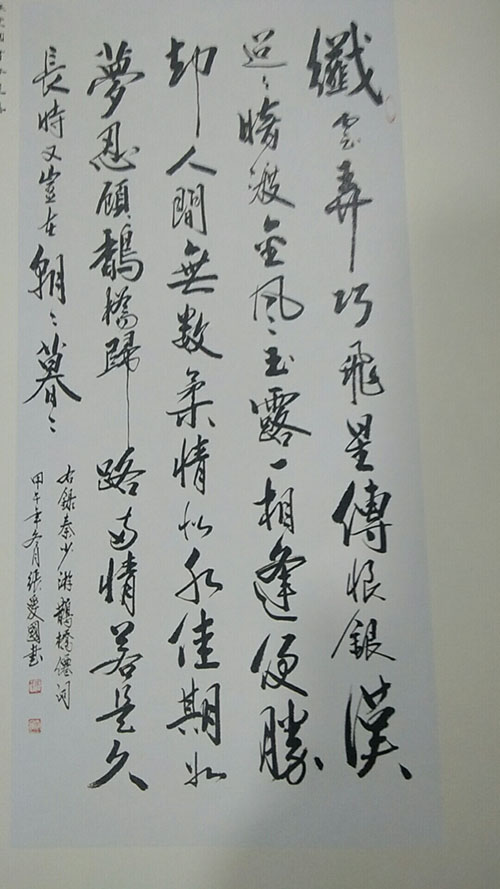 纖雲弄巧飛星傳恨銀漢
迢〻暗渡金風玉露一相逢便勝
却人間無数柔情似水佳期如
夢忍顧鵲橋歸路两情若是久
長時又豈在朝〻暮〻
右錄秦少游鵲橋僊詞
甲午年冬月張愛國書